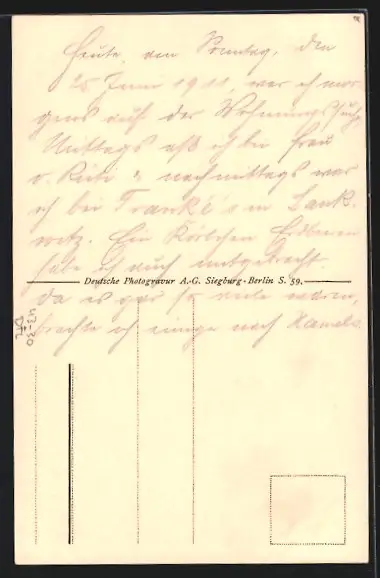 Heute, am Sonntag, den
25. Juni 1911, war ich mor-
gens auf der Wohnungssuche
Mittags aß ich bei Frau
v. nachmittags war
ich bei in Lank-
witz. Ein Körbchen Erdbeeren
habe ich auch mitgebracht.
Deutsche Photogravur A.-G. Siegburg-Berlin S. 59.
da es gar so viele waren,
brachte ich einige nach